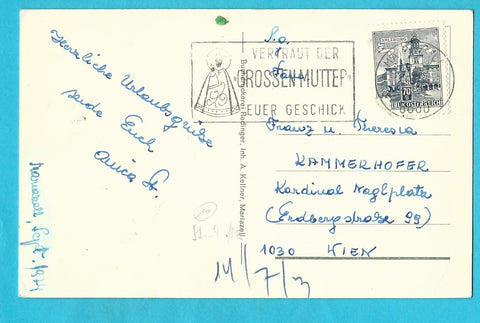 Herzliche Urlaubsgrüße
sendet Euch
Mariazell, Sept. 1974
Buchdruckerei Radinger, Inh. A. Kellner, Mariazell
VERTRAUT DER
GROSSEN MUTTER
EUER GESCHICK
SALZBURG
REPUBLIK ÖSTERREICH
S.g.
Fam.
Franz u. Theresia
KAMMERHOFER
Kardinal Naglplatz
(Erdbergstraße 99)
1030 WIEN
14/7/3